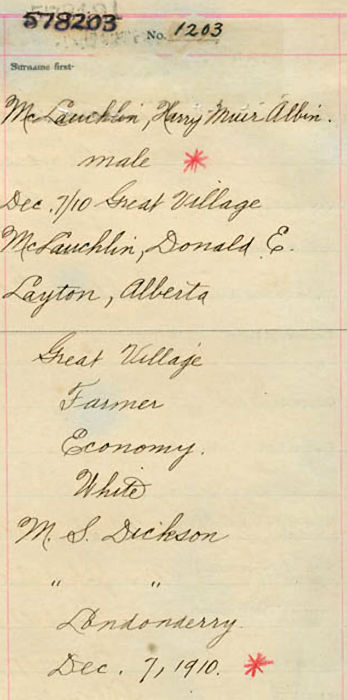 578203
No. 1203
Surname first-
McLauchlin, Harry Muir Albin.
male *
Dec. 7/10 Great Village
McLauchlin, Donald E.
Layton, Alberta
Great Village
Farmer
Economy.
White
M. S. Dickson
" "
Londonderry.
Dec. 7, 1910. *